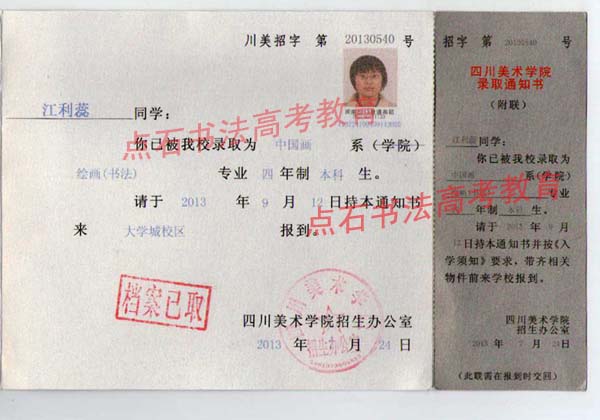 川美招字 第 20130540 号
江利蕊 同学:
你已被我校录取为 中国画 系(学院)
绘画(书法) 专业 四 年制 本科 生。
请于 2013 年 9 月 12 日持本通知书
来 大学城校区 报到。
档案已取
四川美术学院
招生办公室
四川美术学院招生办公室
2013 年 7 月 24 日
点石书法高考教育
点石书法高考教育
招字 第 20130540 号
四川美术学院
录取通知书
(附联)
江利蕊 同学:
你已被我校录取为
中国画 系(学院)
专业
年制 本科 生。
请于 2013 年 9 月
12 日持本通知书并按《入
学须知》要求,带齐相关
物件前来学校报到。
四川美术学院
招生办公室
2013 年 7 月 24 日
(此联需在报到时交回)